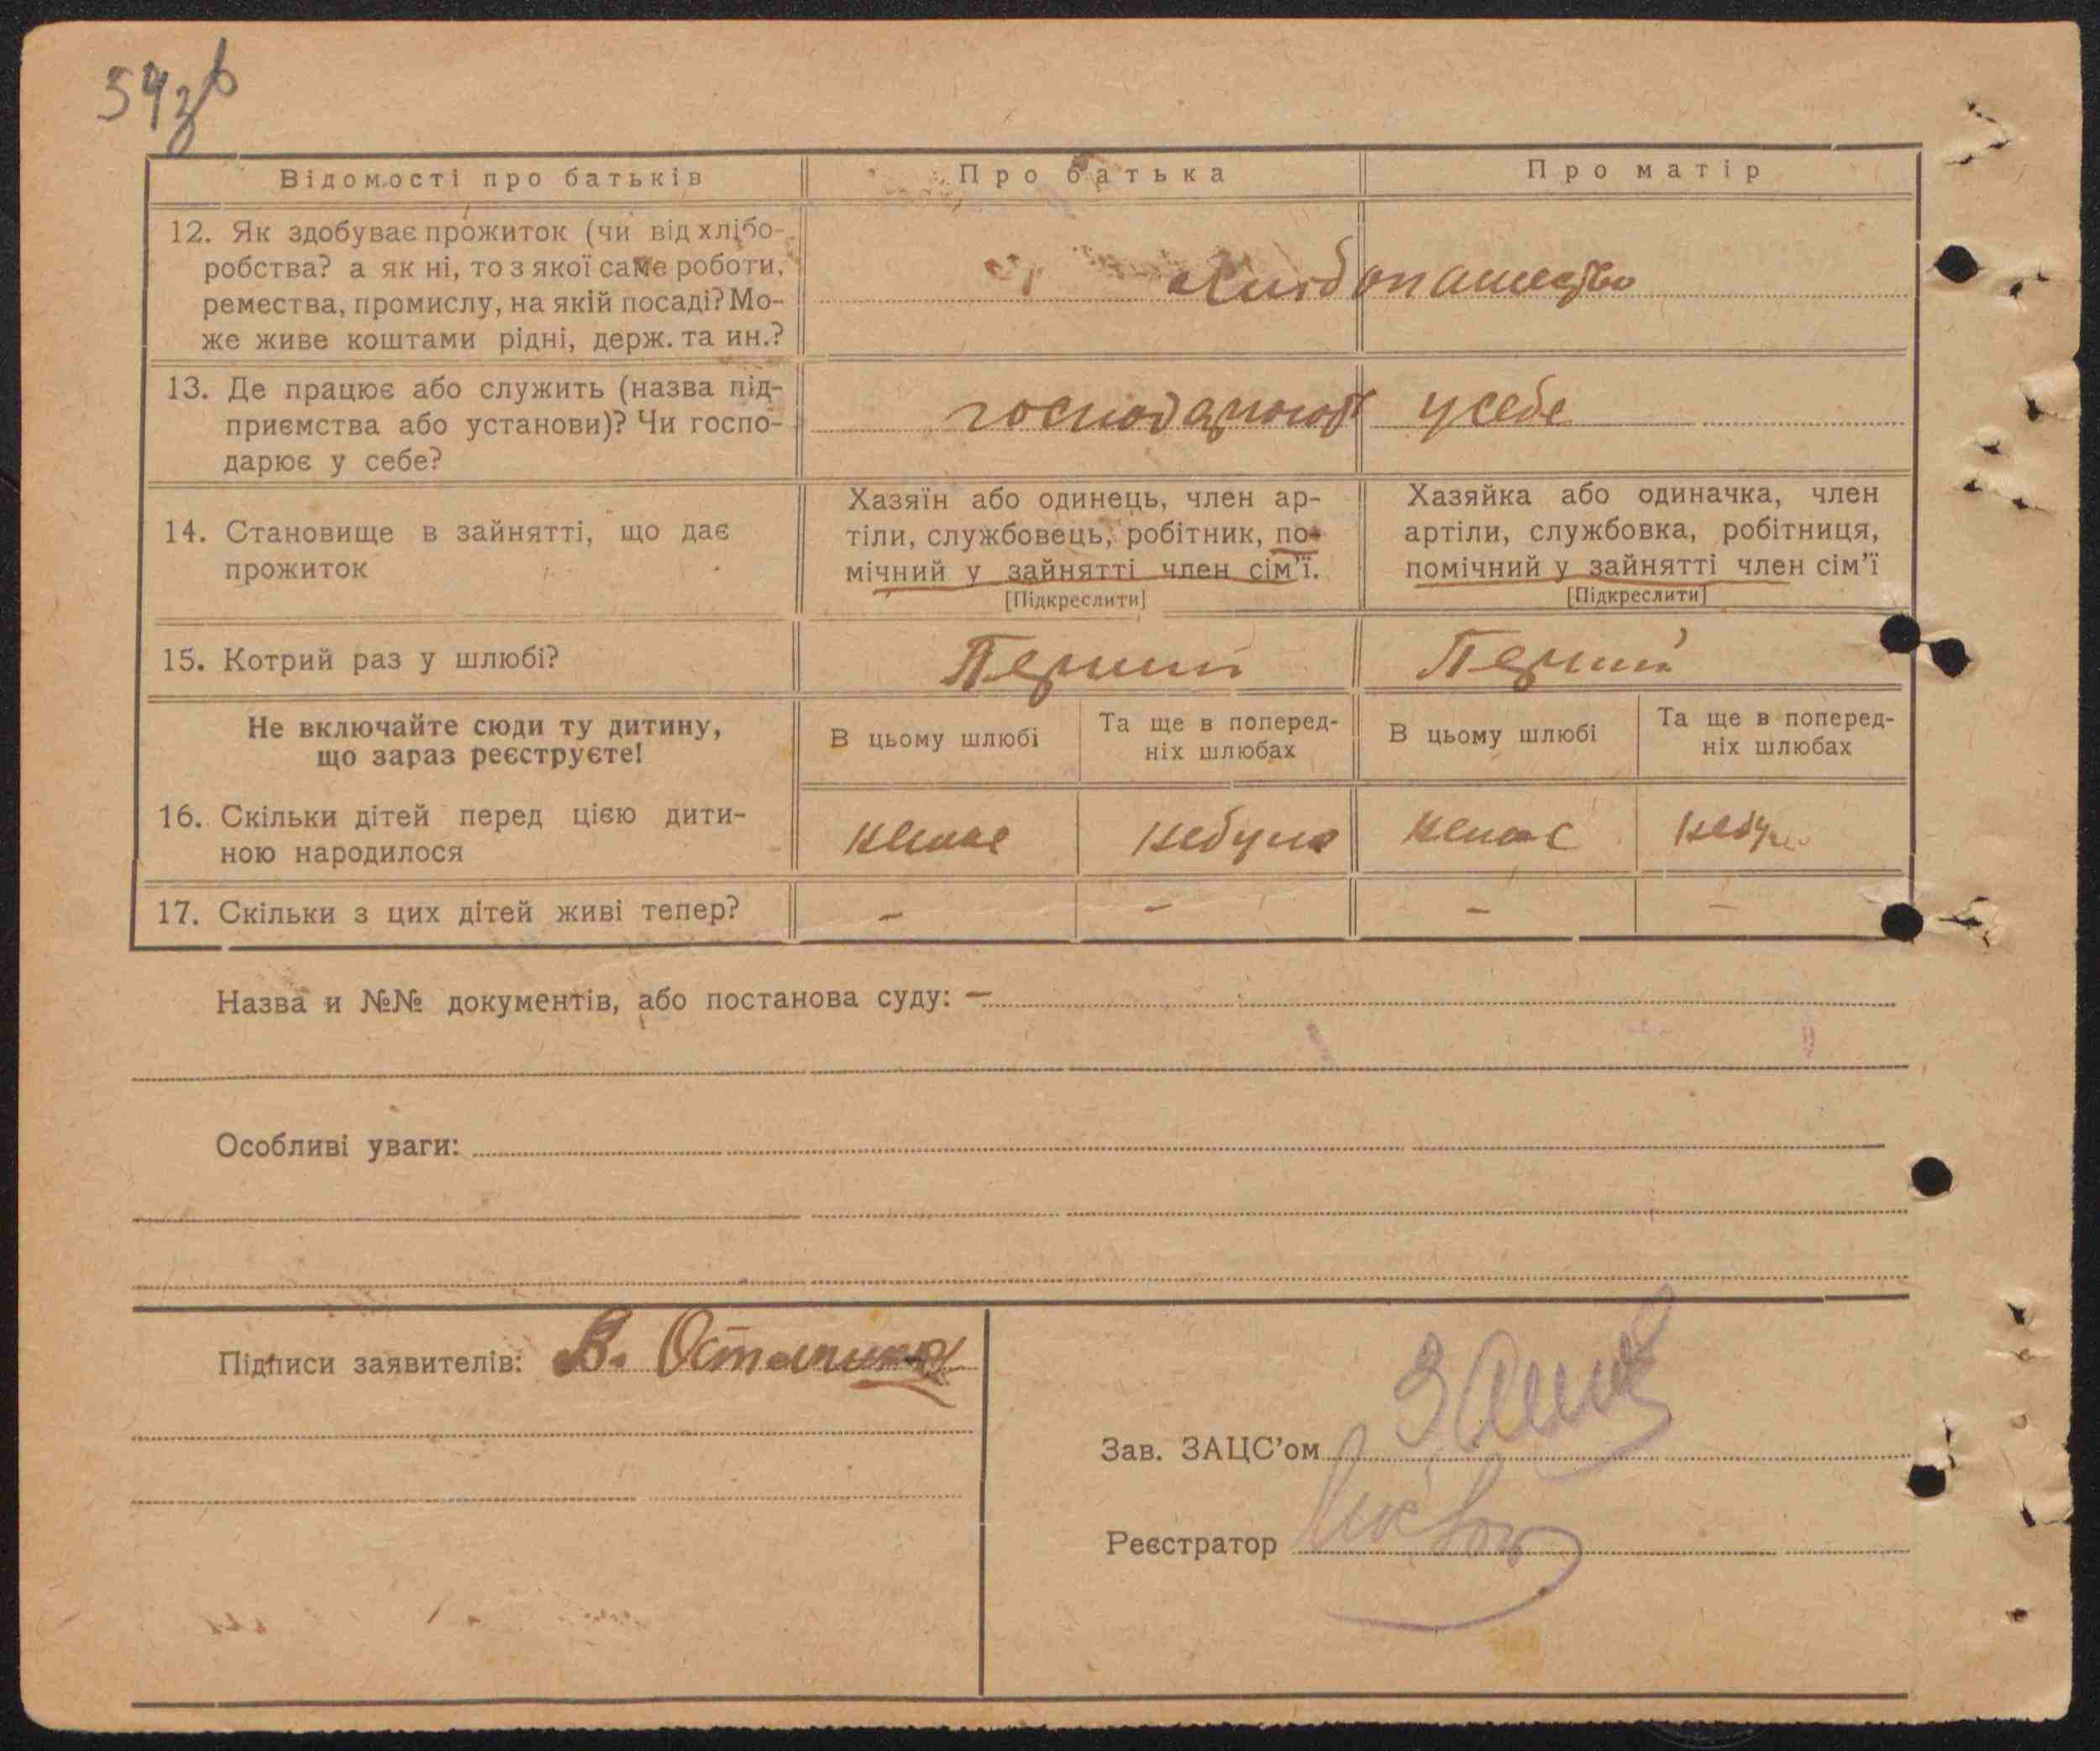 54зв
Відомості про батьків
Про батька
Про матір
12. Як здобуває прожиток (чи від хлібо-
робства? а як ні, то з якої саме роботи,
ремества, промислу, на якій посаді? Мо-
же живе коштами рідні, держ. та ин.?
Хлібопашество
13. Де працює або служить (назва під-
приємства або установи)? Чи госпо-
дарює у себе?
господарюют у себе
14. Становище в зайнятті, що дає
прожиток
Хазяїн або одинець, член ар-
тіли, службовець, робітник, по-
мічний у зайнятті член сім'ї.
[Підкреслити]
Хазяйка або одиначка, член
артіли, службовка, робітниця,
помічний у зайнятті член сім'ї
[Підкреслити]
15. Котрий раз у шлюбі?
Перший
Перший
Не включайте сюди ту дитину,
що зараз реєструєте!
В цьому шлюбі
Та ще в поперед-
ніх шлюбах
В цьому шлюбі
Та ще в поперед-
ніх шлюбах
16. Скільки дітей перед цією дити-
ною народилося
немає
небуло
немає
небуло
17. Скільки з цих дітей живі тепер?
-
-
-
-
Назва и №№ документів, або постанова суду: -
Особливі уваги:
Підписи заявителів: В.
Зав. ЗАЦС'ом
Реєстратор